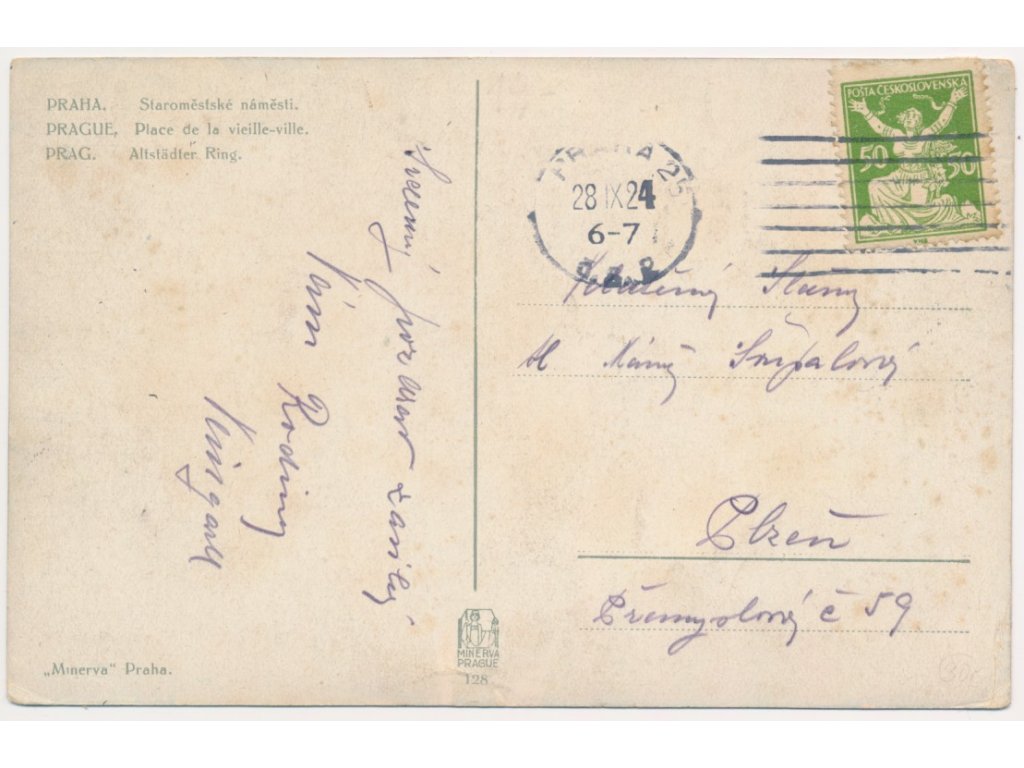 PRAHA. Staroměstské náměstí.
PRAGUE. Place de la vieille-ville.
PRAG. Altstädter Ring.
POŠTA ČESKOSLOVENSKÁ
50 50
PRAHA 25
28 IX 24
6-7
Srdečný pozdrav zasílá
Vám
Rodina
Slečny
sl. Máně
Plzeň
Přemyslova č 59
MINERVA
PRAGUE
128
„Minerva" Praha.